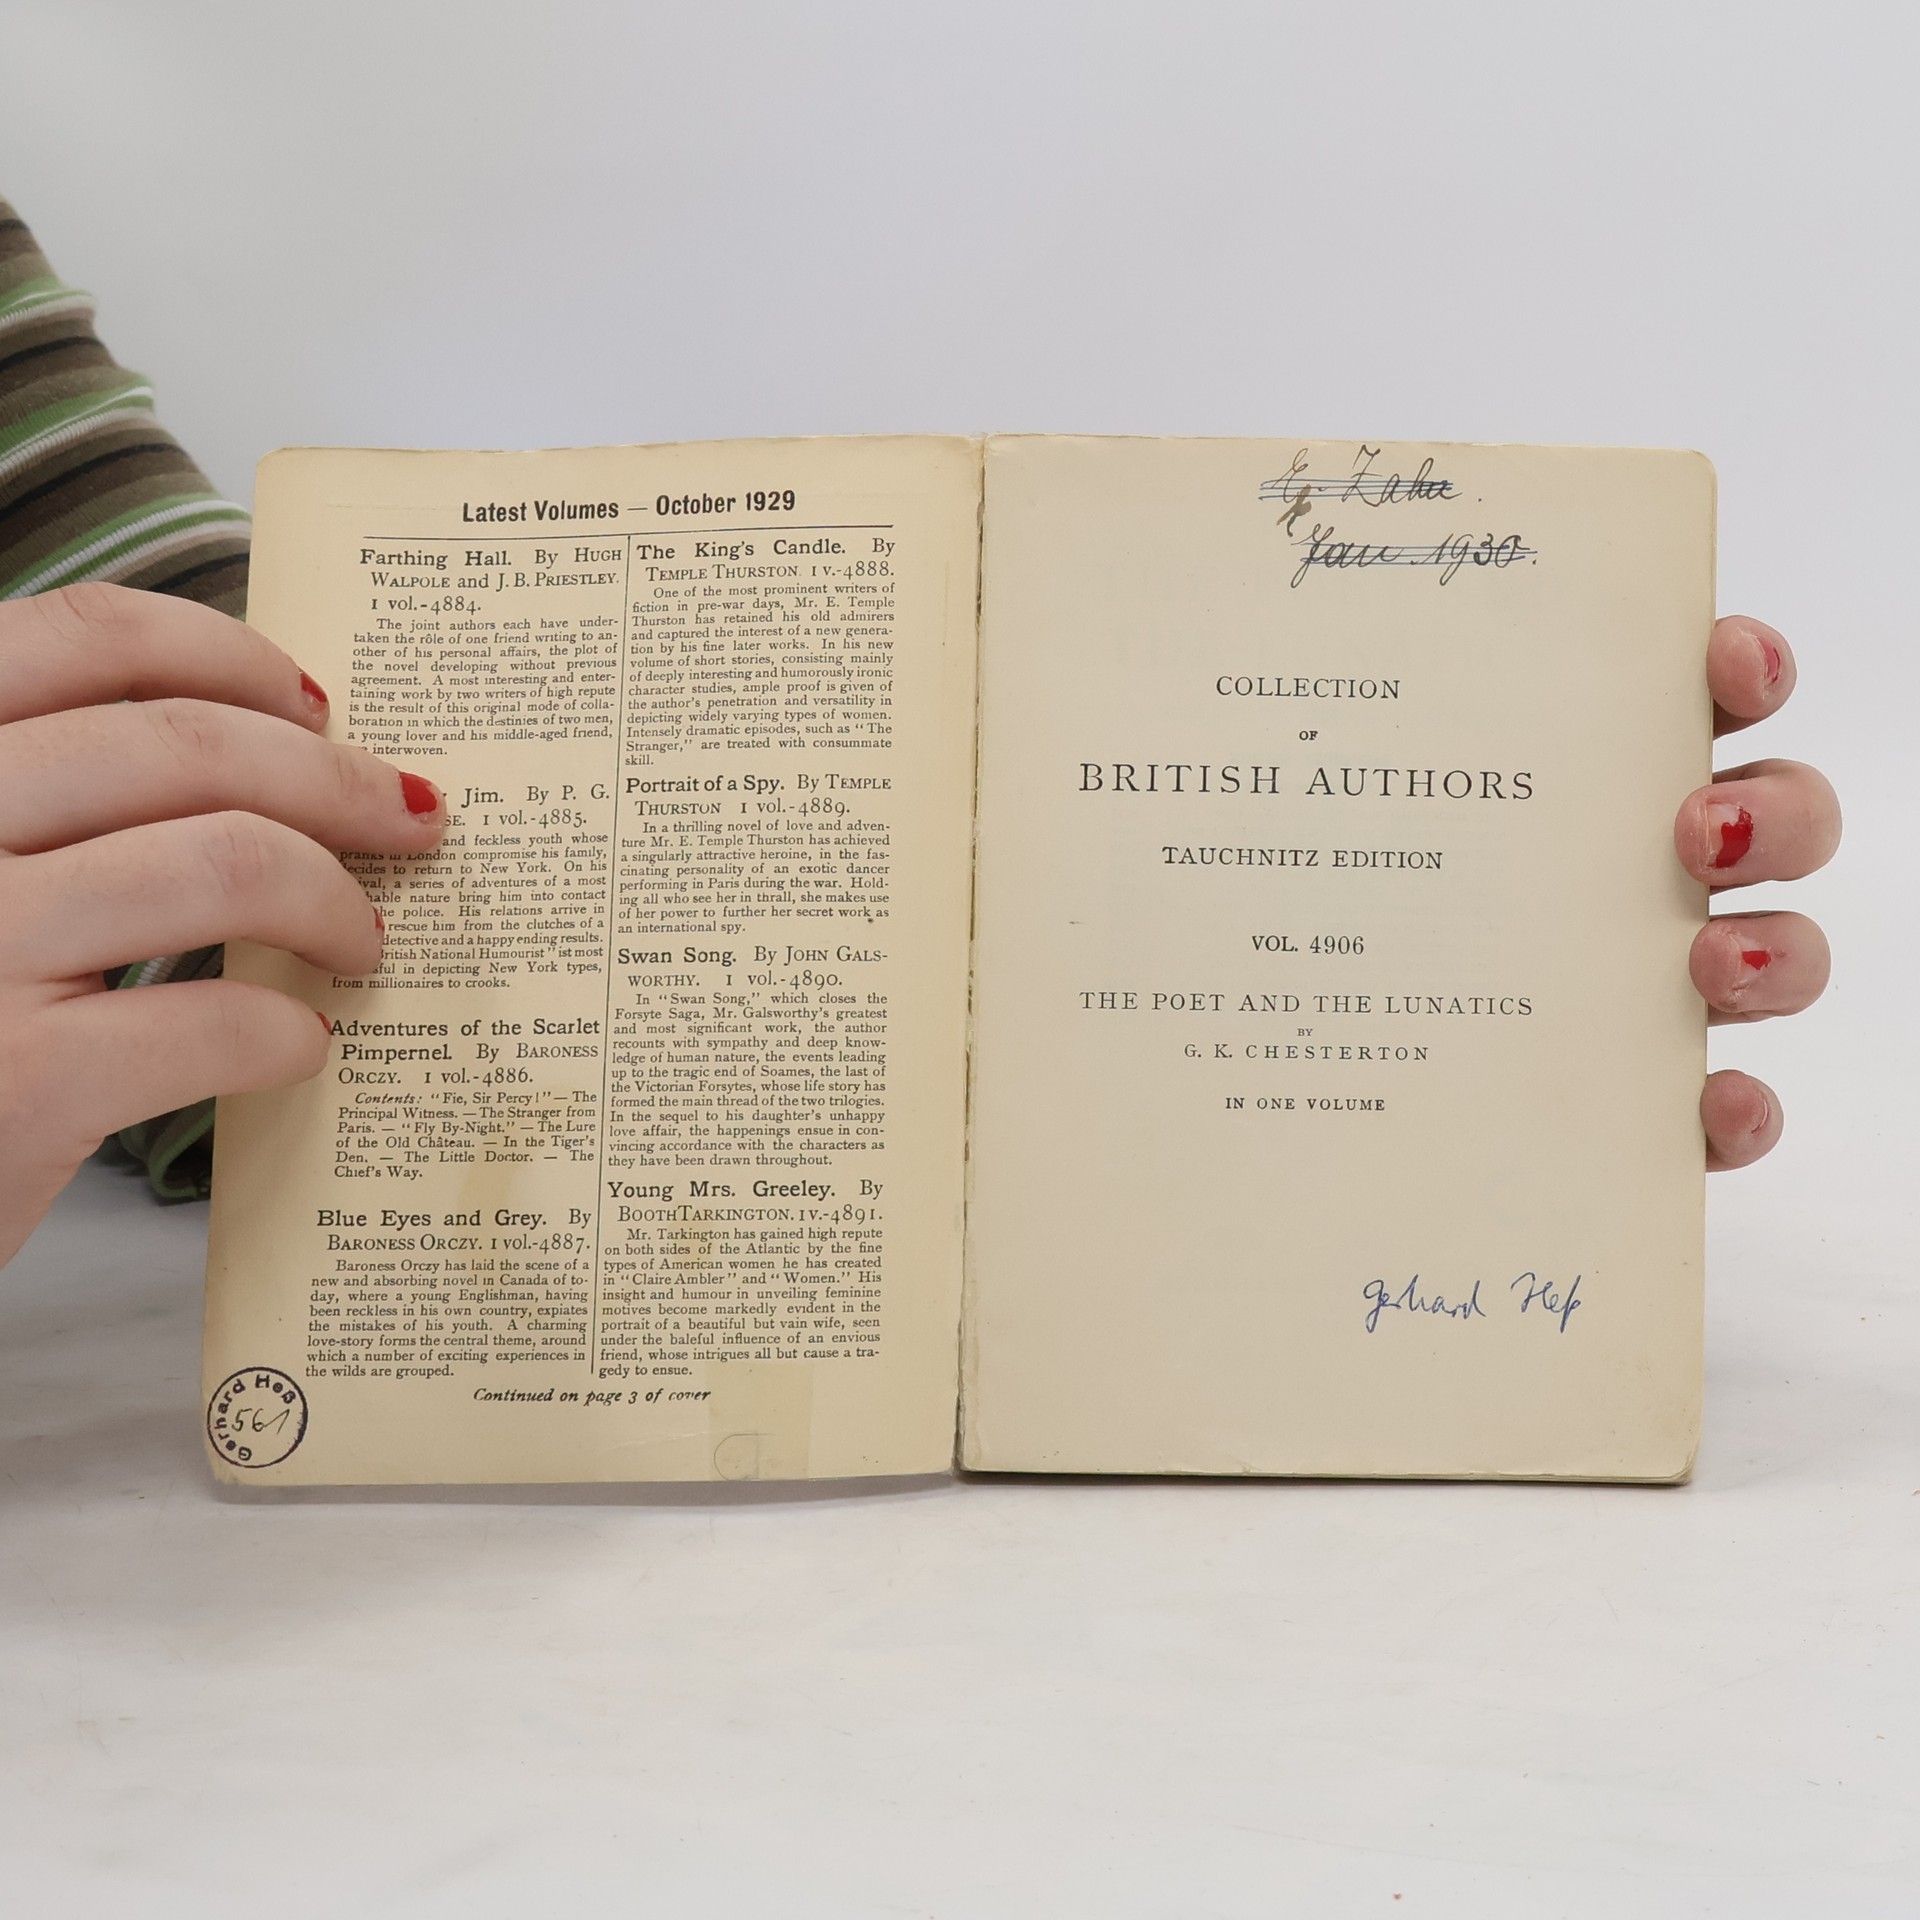 Latest Volumes — October 1929
Farthing Hall. By HUGH
WALPOLE and J. B. PRIESTLEY.
1 vol.-4884.
The joint authors each have under-
taken the rôle of one friend writing to an-
other of his personal affairs, the plot of
the novel developing without previous
agreement. A most interesting and enter-
taining work by two writers of high repute
is the result of this original mode of colla-
boration in which the destinies of two men,
a young lover and his middle-aged friend,
interwoven.
Jim. By P. G.
SE. 1 vol.-4885.
and feckless youth whose
pranks in London compromise his family,
decides to return to New York. On his
ival, a series of adventures of a most
able nature bring him into contact
he police. His relations arrive in
rescue him from the clutches of a
detective and a happy ending results.
ritish National Humourist" ist most
sful in depicting New York types,
from millionaires to crooks.
Adventures of the Scarlet
Pimpernel. By BARONESS
ORCZY. 1 vol.-4886.
Contents: "Fie, Sir Percy!" — The
Principal Witness. — The Stranger from
Paris. — "Fly By-Night." — The Lure
of the Old Château. — In the Tiger's
Den. — The Little Doctor. — The
Chief's Way.
Blue Eyes and Grey. By
BARONESS ORCZY. 1 vol.-4887.
Baroness Orczy has laid the scene of a
new and absorbing novel in Canada of to-
day, where a young Englishman, having
been reckless in his own country, expiates
the mistakes of his youth. A charming
love-story forms the central theme, around
which a number of exciting experiences in
the wilds are grouped.
The King's Candle. By
TEMPLE THURSTON. 1 v.-4888.
One of the most prominent writers of
fiction in pre-war days, Mr. E. Temple
Thurston has retained his old admirers
and captured the interest of a new genera-
tion by his fine later works. In his new
volume of short stories, consisting mainly
of deeply interesting and humorously ironic
character studies, ample proof is given of
the author's penetration and versatility in
depicting widely varying types of women.
Intensely dramatic episodes, such as "The
Stranger," are treated with consummate
skill.
Portrait of a Spy. By TEMPLE
THURSTON 1 vol.-4889.
In a thrilling novel of love and adven-
ture Mr. E. Temple Thurston has achieved
a singularly attractive heroine, in the fas-
cinating personality of an exotic dancer
performing in Paris during the war. Hold-
ing all who see her in thrall, she makes use
of her power to further her secret work as
an international spy.
Swan Song. By JOHN GALS-
WORTHY. 1 vol.-4890.
In "Swan Song," which closes the
Forsyte Saga, Mr. Galsworthy's greatest
and most significant work, the author
recounts with sympathy and deep know-
ledge of human nature, the events leading
up to the tragic end of Soames, the last of
the Victorian Forsytes, whose life story has
formed the main thread of the two trilogies.
In the sequel to his daughter's unhappy
love affair, the happenings ensue in con-
vincing accordance with the characters as
they have been drawn throughout.
Young Mrs. Greeley. By
BOOTH TARKINGTON. 1 v.-4891.
Mr. Tarkington has gained high repute
on both sides of the Atlantic by the fine
types of American women he has created
in "Claire Ambler" and "Women." His
insight and humour in unveiling feminine
motives become markedly evident in the
portrait of a beautiful but vain wife, seen
under the baleful influence of an envious
friend, whose intrigues all but cause a tra-
gedy to ensue.
Continued on page 3 of cover
Gerhard Heß
561
Zahn.
Jan. 1930.
COLLECTION
OF
BRITISH AUTHORS
TAUCHNITZ EDITION
VOL. 4906
THE POET AND THE LUNATICS
BY
G. K. CHESTERTON
IN ONE VOLUME
Gerhard Heß